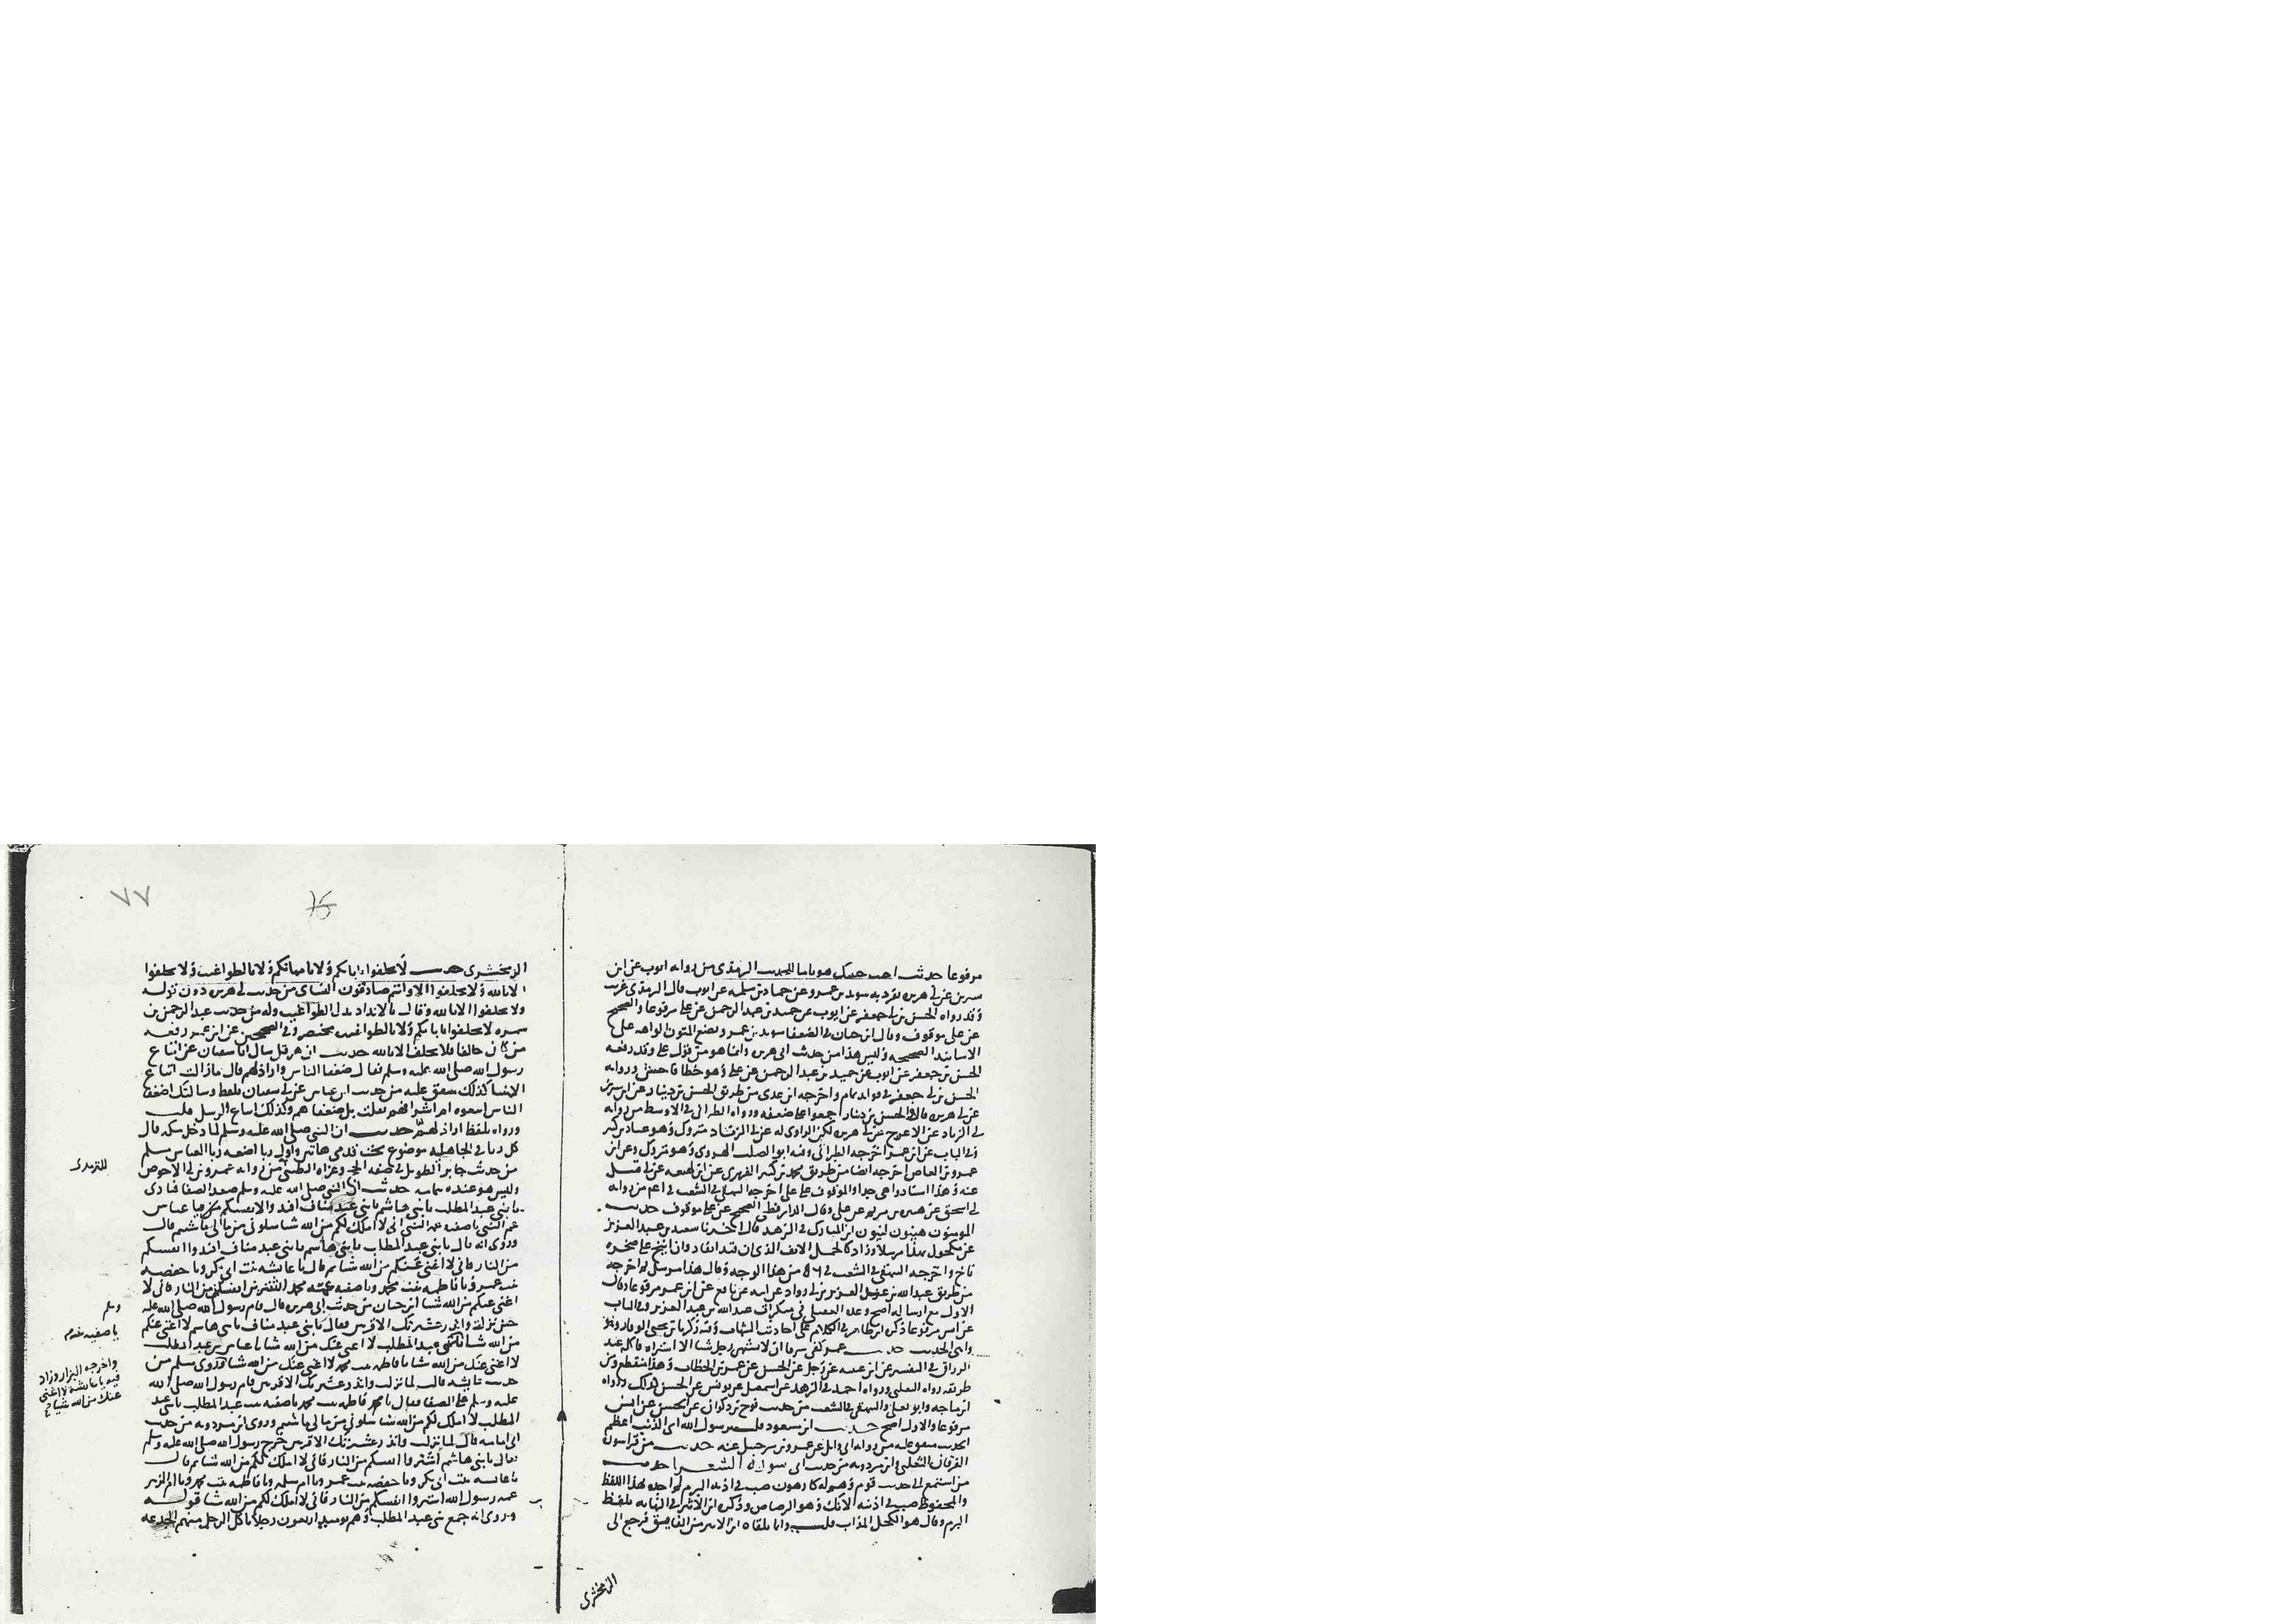 مرفوعا حدث احبب حبيبك هونا ما الحديث الترمذى من رواية ايوب عن ابن
سيرين عن ابى هريرة تفرد به سويد بن عمرو عن حماد بن سلمة عن ايوب قال الترمذى غريب
وقد رواه الحسن بن ابى جعفر عن ايوب عن حميد بن عبد الرحمن عن على مرفوعا والصحيح
عن على موقوف وقال ابن حبان فى الضعفا سويد بن عمرو يضع المتون الواهية على
الاسانيد الصحيحة وليس هذا من حديث ابى هريرة وانما هو من قول على وقد رفعه
الحسن بن ابى جعفر عن ايوب عن حميد بن عبد الرحمن عن على وهو خطا فاحش ورواية
الحسن بن ابى جعفر فى فوائد تمام واخرجه ابن عدى من طريق الحسن بن دينار عن ابن سيرين
عن ابى هريرة قال والحسن بن دينار اجمعوا على ضعفه ورواه الطبرانى فى الاوسط من رواية
ابى الزناد عن الاعرج عن ابى هريرة لكن الراوى له عن ابى الزناد متروك وهو عباد بن كثير
وفى الباب عن ابن عمر اخرجه الطبرانى وفيه ابو الصلت الهروى وهو متروك وعن ابن
عمرو بن العاص اخرجه ايضا من طريق محمد بن كثير الفهرى عن ابن لهيعة عن ابى قبيل
عنه وهذا اسناد واهى جدا والموقوف على على اخرجه البيهقى فى الشعب من رواية
ابى اسحق عن هبيرة بن مريم عن على وقال الدارقطنى الصحيح عن على موقوف حديث
المومنون هينون لينون ابن المبارك فى الزهد قال اخبرنا سعيد بن عبد العزيز
عن مكحول بهذا مرسلا وزاد كالجمل الانف الذى ان قيد انقاد وان انيخ على صخرة
ناخ واخرجه البيهقى فى الشعب فى من هذا الوجه وقال هذا مرسل ثم اخرجه
من طريق عبد الله بن عبد العزيز بن ابى رواد عن ابيه عن نافع عن ابن عمر مرفوعا وقال
الاول مع ارساله اصح وعده العقيلى فى منكرات عبد الله بن عبد العزيز وفى الباب
عن انس مرفوعا ذكره ابن طاهر فى الكلام على احاديث الشهاب وفيه زكريا بن يحيى الوقار
واهى الحديث حديث عمر كفى سرفا ان لا يشتهى رجل شيا الا اشتراه فاكله عبد
الرزاق فى التفسير عن ابن عيينة عن رجل عن الحسن عن عمر بن الخطاب وهذا منقطع ومن
طريقه رواه الثعلبى ورواه احمد فى الزهد عن اسمعيل عن يونس عن الحسن كذلك ورواه
ابن ماجه وابو يعلى والبيهقى فى الشعب من حديث نوح بن ذكوان عن الحسن عن انس
مرفوعا والاول اصح حديث ابن مسعود قلت يا رسول الله اى الذنب اعظم
الحديث متفق عليه من رواية ابى وائل عن عمرو بن شرحبيل عنه حديث من قرا سورة
الفرقان الثعلبى وابن مردويه من حديث ابى سورة الشعرا حديث
من استمع الى حديث قوم وهم له كارهون صب فى اذنيه البرم لم اجده بهذا اللفظ
والمحفوظ صب فى اذنه الانك وهو الرصاص وذكره ابن الاثير فى النهاية بلفظ
البرم وقال هو الكحل المذاب قلت وانما تلقاه ابن الاثير من الفايق فرجع الى
الزمخشرى
٧٧
الزمخشرى حديث لا تحلفوا بابائكم ولا بامهاتكم ولا بالطواغيت ولا تحلفوا
الا بالله ولا تحلفوا الا وانتم صادقون النساى من حديث ابى هريرة دون قوله
ولا تحلفوا الا بالله وقال بالانداد بدل الطواغيت وله من حديث عبد الرحمن بن
سمرة لا تحلفوا بابائكم ولا بالطواغيت مختصر وفى الصحيحين عن ابن عمر رفعه
من كان حالفا فلا يحلف الا بالله حديث ان هرقل سال ابا سفيان عن اتباع
رسول الله صلى الله عليه وسلم فقال ضعفا الناس واراذلهم قال ما زالت اتباع
الانبيا كذلك متفق عليه من حديث ابن عباس عن ابى سفيان بلفظ وسالتك اضعفا
الناس اتبعوه ام اشرافهم فقلت بل ضعفاهم وكذلك اتباع الرسل قلت
ورواه بلفظ اراذلهم حديث ان النبى صلى الله عليه وسلم لما دخل مكة قال
كل ربا فى الجاهلية موضوع تحت قدمى هاتين واول ربا اضعه ربا العباس مسلم
من حديث جابر الطويل فى صفة الحج وعزاه الطيبى من رواية عمرو بن الاحوص
للترمذى
وليس هو عنده بتمامه حديث ان النبى صلى الله عليه وسلم صعد الصفا فنادى
يا بنى عبد المطلب يا بنى هاشم يا بنى عبد مناف افتدوا انفسكم من يا عباس
عم النبى يا صفية عمة النبى انى لا املك لكم من الله شيا سلونى من مالى ما شيتم قال
وروى انه قال يا بنى عبد المطلب يا بنى هاشم يا بنى عبد مناف افتدوا انفسكم
من النار فانى لا اغنى عنكم من الله شيا ثم قال يا عايشة بنت ابى بكر ويا حفصة
بنت عمر ويا فاطمة بنت محمد ويا صفية عمة محمد اشترين انفسكن من النار فانى لا
اغنى عنكم من الله شيا ابن حبان من حديث ابى هريرة قال قام رسول الله صلى الله عليه
وسلم
حين نزلت وانذر عشيرتك الاقربين فقال يا بنى عبد مناف يا بنى هاشم لا اغنى عنكم
من الله شيا يا بنى عبد المطلب لا اغنى عنك من الله شيا يا عباس بن عبد المطلب
يا صفية عمة
لا اغنى عنك من الله شيا يا فاطمة بنت محمد لا اغنى عنك من الله شيا وروى مسلم من
واخرجه البزار وزاد
فيه يا عايشة لا اغنى
عنك من الله شيا
حديث عايشة قالت لما نزلت وانذر عشيرتك الاقربين قام رسول الله صلى الله
عليه وسلم على الصفا فقال يا فاطمة بنت محمد يا صفية بنت عبد المطلب يا بنى عبد
المطلب لا املك لكم من الله شيا سلونى من مالى ما شيتم وروى ابن مردويه من حديث
ابى امامة قال لما نزلت وانذر عشيرتك الاقربين خرج رسول الله صلى الله عليه وسلم
فقال يا بنى هاشم اشتروا انفسكم من النار فانى لا املك لكم من الله شيا ثم قال
يا عايشة بنت ابى بكر ويا حفصة بنت عمر ويا ام سلمة ويا فاطمة بنت محمد ويا ام الزبير
عمة رسول الله اشتروا انفسكم من النار فانى لا املك لكم من الله شيا قوله
وروى انه جمع بنى عبد المطلب وهم يوميذ اربعون رجلا ياكل الرجل منهم الجذعة